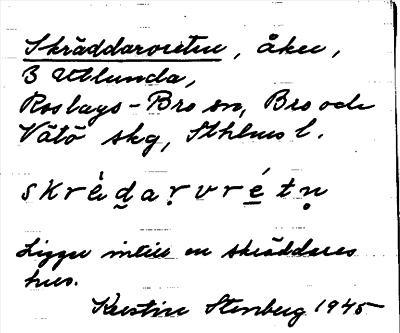 Skräddarvreten, åker,
3 Utlunda,
Roslags-Bro sn, Bro och
Vätö skg, Sthlms l.
skrèḍaṛvrétṇ
Ligger intill en skräddares
hus.
Kerstin Stenberg 1945